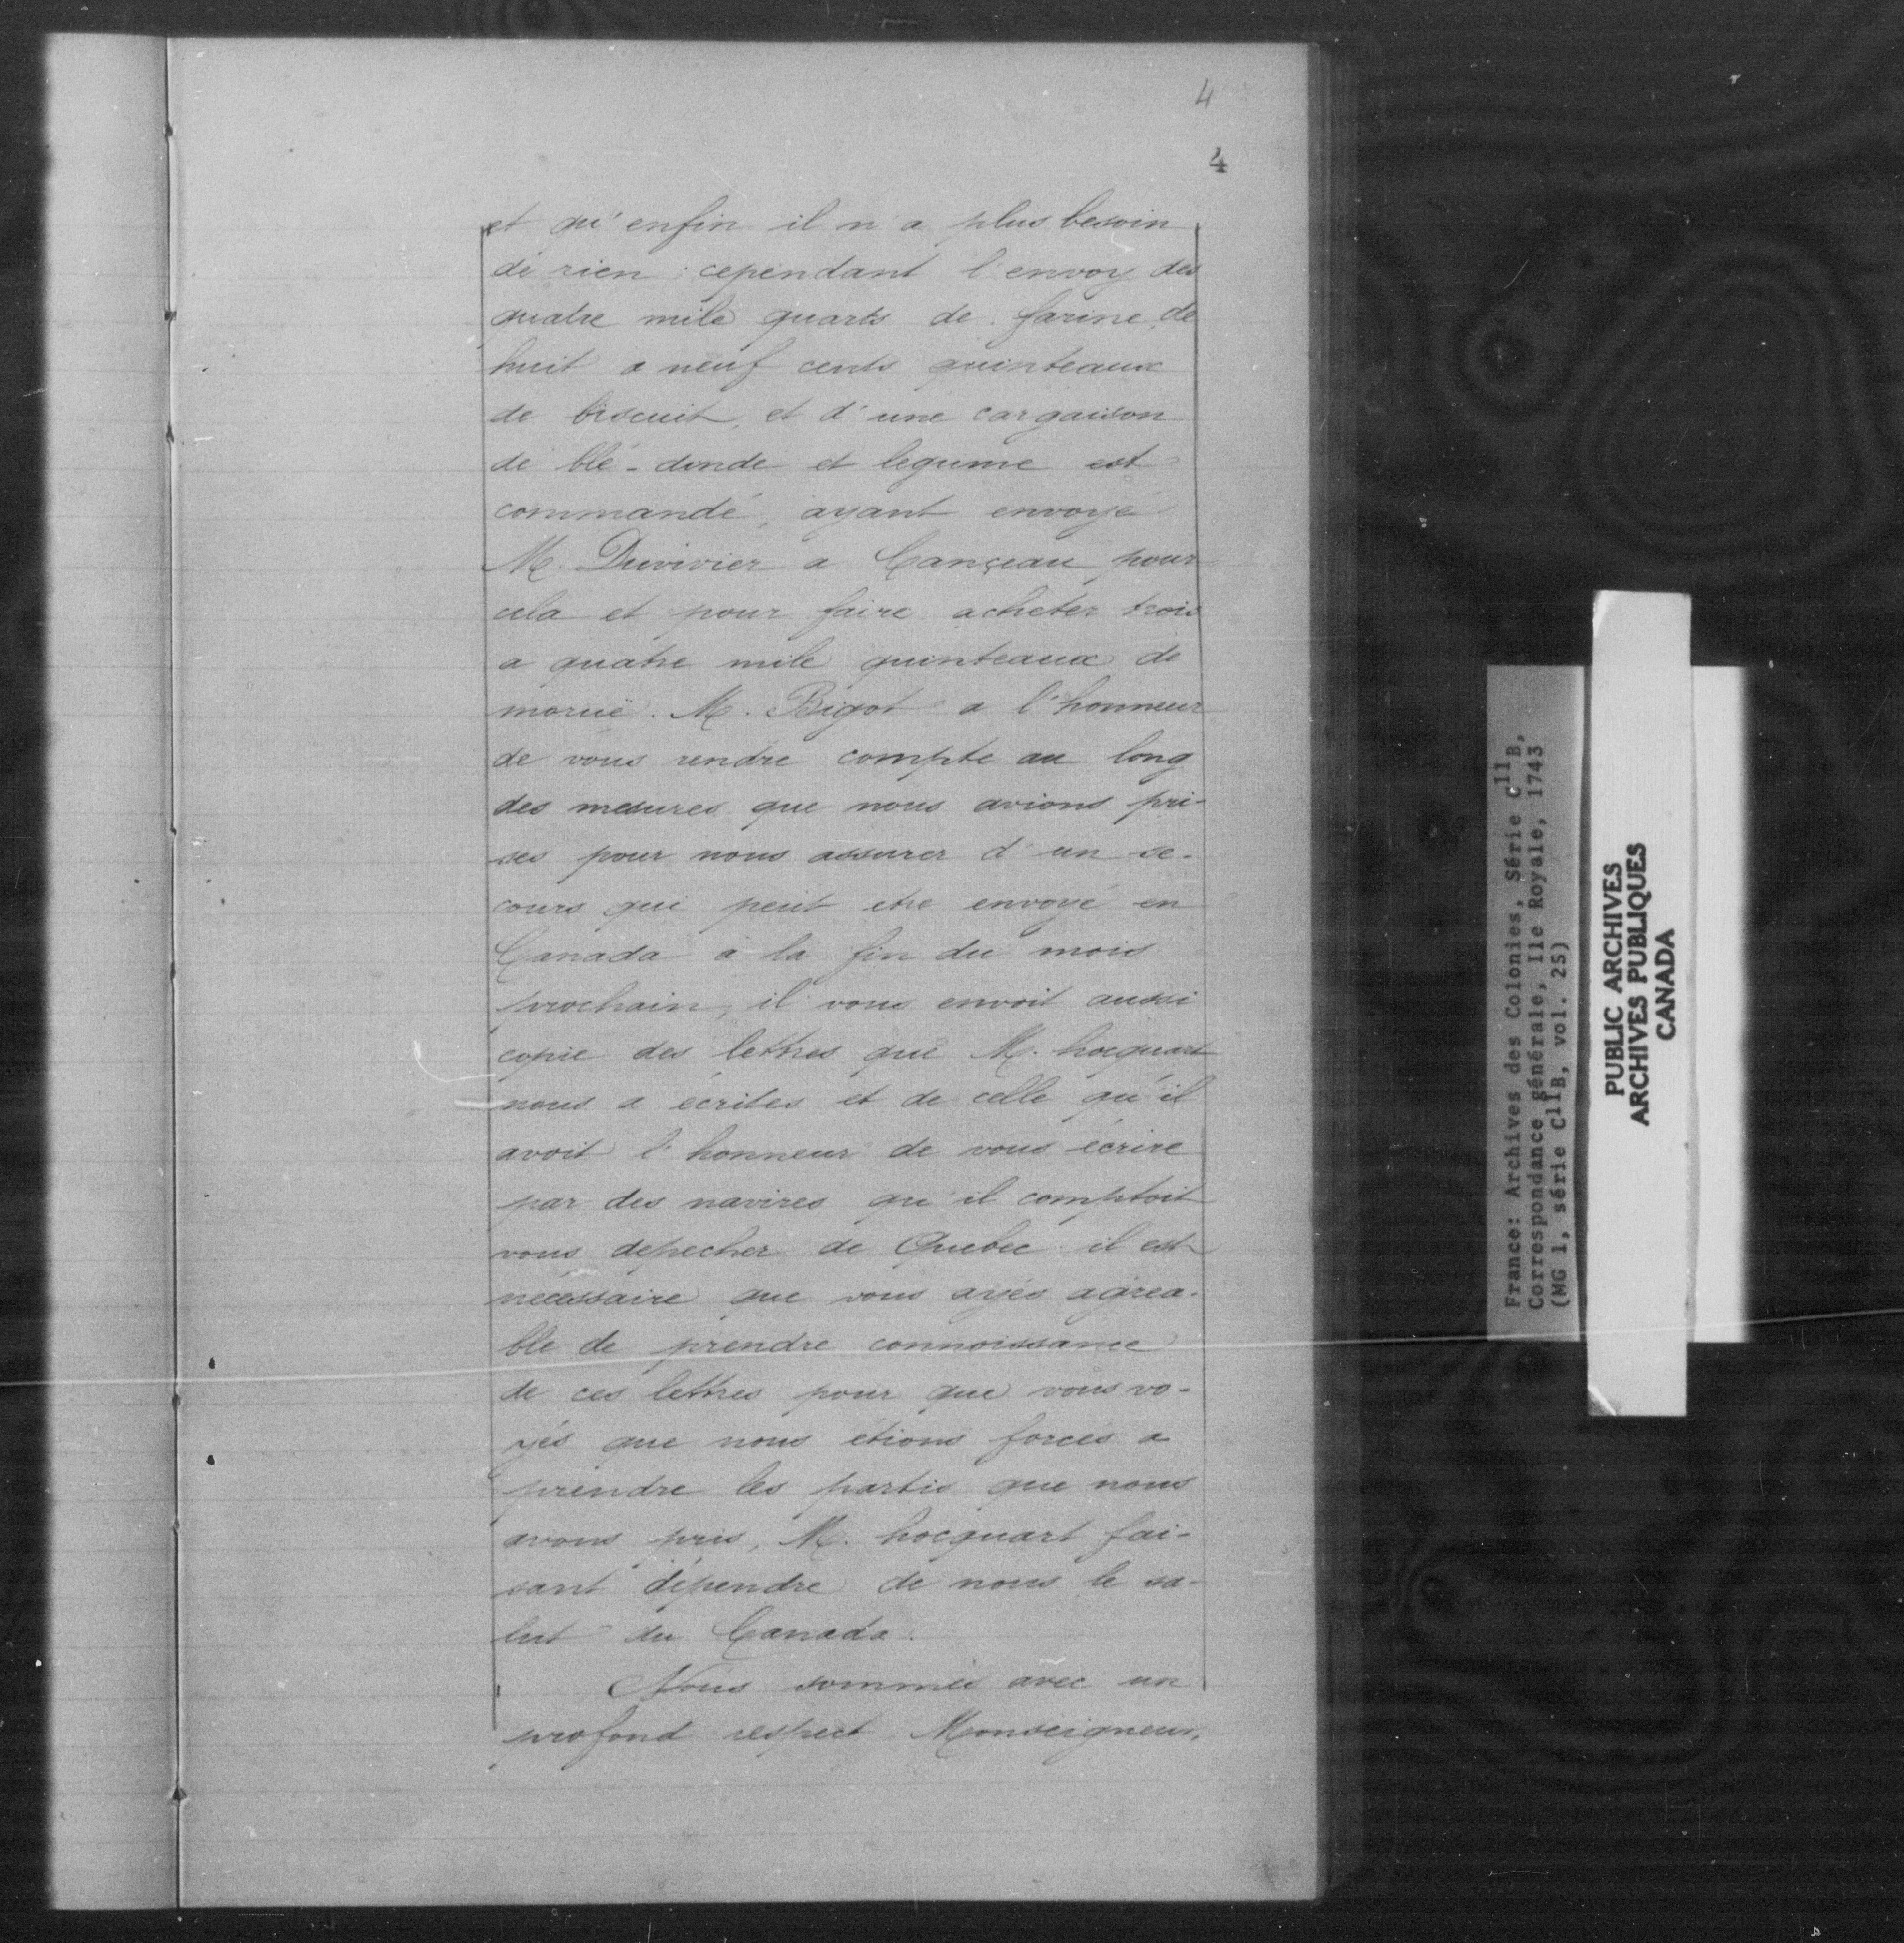 4
4
et qu'enfin il n a plus besoin
de rien : cependant l'envoy des
quatre mile quarts de farine, de
huit a neuf cents quinteaux
de biscuit, et d'une cargaison
de blé-dinde et legume est
commandé, ayant envoyé
M. Duvivier a Cançeau pour
cela et pour faire acheter trois
a quatre mile quinteaux de
moruë. M. Bigot a l'honneur
de vous rendre compte au long
des mesures que nous avions pri-
ses pour nous assurer d'un se-
cours qui peut etre envoyé en
Canada à la fin du mois
prochain, il vous envoit aussi
copie des lettres que M. hocquart
nous a écrites et de celle qu'il
avoit l'honneur de vous écrire
par des navires qu'il comptoit
vous depecher de Quebec. il est
nécessaire que vous ayés agrea-
ble de prendre connoissance
de ces lettres pour que vous vo-
yés que nous étions forcés a
prendre les partis que nous
avons pris, M. hocquart fai-
sant dépendre de nous le sa-
lut du Canada.
Nous sommes avec un
profond respect Monseigneur,
France: Archives des Colonies, Série C11B,
Correspondance générale, Ile Royale, 1743
(MG 1, série C11B, vol. 25)
PUBLIC ARCHIVES
ARCHIVES PUBLIQUES
CANADA